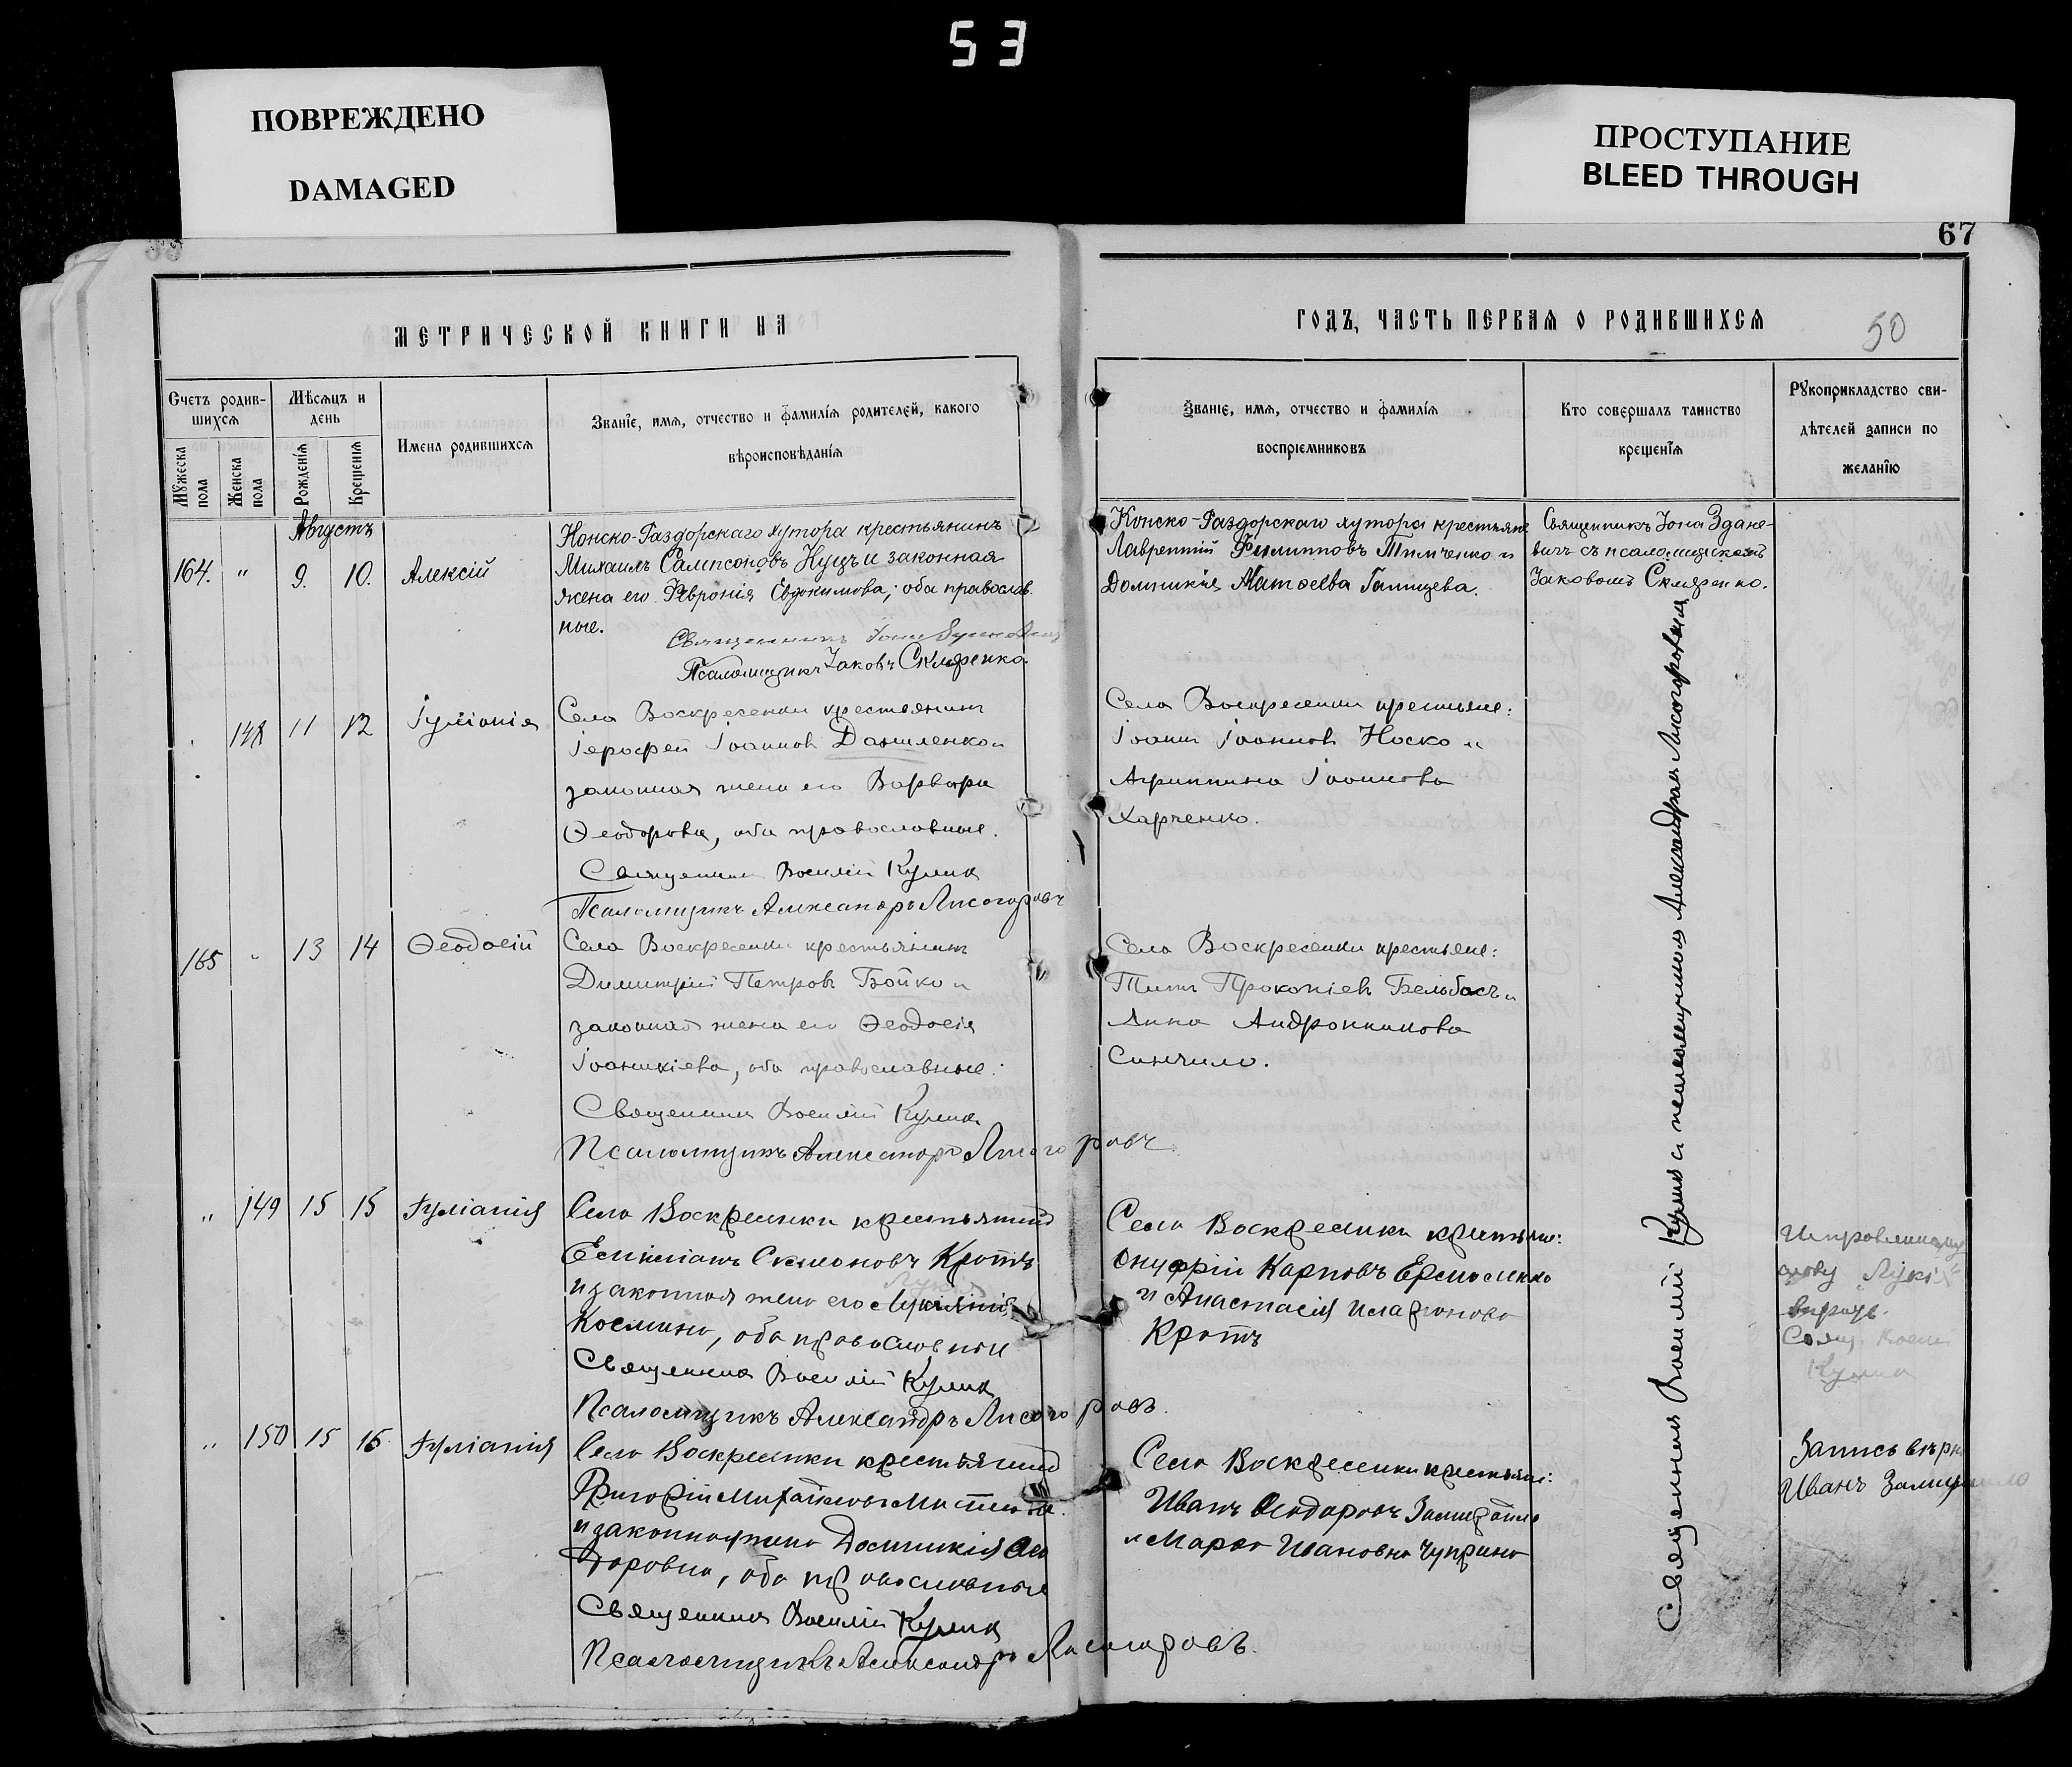 53
ПОВРЕЖДЕНО
DAMAGED
ПРОСТУПАНИЕ
BLEED THROUGH
67
МЕТРИЧЕСКОЙ КНИГИ НА
ГОДЪ, ЧАСТЬ ПЕРВАЯ О РОДИВШИХСЯ
50
Счетъ родив-
шихся
Мужеска пола
Женска пола
Мѣсяцъ и
день
Рожденія
Крещенія
Имена родившихся
Званіе, имя, отчество и фамилія родителей, какого
вѣроисповѣданія
Званіе, имя, отчество и фамилія
воспріемниковъ
Кто совершалъ таинство
крещенія
Рукоприкладство сви-
дѣтелей записи по
желанію
Августъ
164. " 9. 10. Алексій
Конско-Раздорскаго хутора крестьянинъ
Михаилъ Сампсоновъ Куцъ и законная
жена его Февронія Евдокимова; оба православ-
ные.
Священникъ Іона
Псаломщикъ Іаковъ Скляренко
Конско-Раздорскаго хутора крестьяне
Лаврентій Филипповъ Тимченко и
Домникія Матѳеева
Священникъ Іона Здане-
вичъ съ псаломщикомъ
Іаковомъ Скляренко.
148 11 12 Іуліанія
Села Воскресенки крестьянинъ
Іероѳей Іоанновъ Даниленко и
законная жена его Варвара
Ѳеодорова, оба православные.
Священникъ Василій Кулик
Псаломщикъ Александръ Лисогоровъ
Села Воскресенки крестьяне:
Іоаннъ Іоанновъ Носко и
Агриппина Іоаннова
Харченко.
165 " 13 14 Ѳеодосій
Села Воскресенки крестьянинъ
Димитрій Петровъ Бойко и
законная жена его Ѳеодосія
Іоаникіева, оба православные.
Священникъ Василій Кулик
Псаломщикъ Александръ Лисогоровъ
Села Воскресенки крестьяне:
Титъ Прокопіевъ Бельбасъ и
Анна Андроникова
Синчило.
" 149 15 15 Іуліанія
Села Воскресенки крестьянинъ
Емиліанъ Симоновъ Кротъ
и законная жена его
Космина, оба православные
Священникъ Василій Кулик
Псаломщикъ Александръ Лисогоровъ
Села Воскресенки крестьяне:
Онуфрій Карповъ Ермоленко
и Анастасія
Кротъ
слову Лукія
вѣрить.
Свящ. Васил
Кулик
" 150 15 16 Іуліанія
Села Воскресенки крестьянинъ
Григорій Михайловъ
и законная жена Домникія Ѳео
дорова, оба православные
Священникъ Василій Кулик
Псаломщикъ Александръ Лисогоровъ.
Села Воскресенки крестьяне:
Иванъ Ѳеодоровъ
и Марѳа Ивановна Чуприна
Запись вѣрна
Иванъ
Священникъ Василій Кулик с псаломщикомъ Александромъ Лисогоровымъ